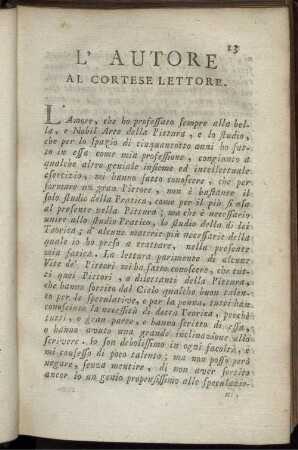 13
L' AUTORE
AL CORTESE LETTORE.
L'Amore, che ho professato sempre alla bel-
la, e Nobil Arte della Pittura, e lo studio,
che per lo spazio di cinquantotto anni ho fat-
to in essa come mia professione, congiunto a
qualche altro geniale insieme ed intellettuale
esercizio, mi hanno fatto conoscere, che per
formare un gran Pittore, non è bastante il
solo studio della Pratica, come per il più si usa
al presente nella Pittura; ma che è necessario
unire allo studio Pratico, lo studio della di lei
Teorica; d' alcune materie più necessarie della
quale io ho preso a trattare, nella presente
mia fatica. La lettura parimente di alcune
Vite de' Pittori mi ha fatto conoscere, che tut-
ti quei Pittori, e dilettanti della Pittura,
che hanno sortito dal Cielo qualche buon talen-
to per le speculative, e per la penna, tutti han
conosciuto la necessità di detta Teorica, perchè
tutti, o gran parte, o hanno scritto di essa,
o hanno avuto una grande inclinazione allo
scrivere. Io son debolissimo in ogni facoltà, e
mi confesso di poco talento; ma non posso però
negare, senza mentire, di non aver sortito
ancor io un genio propensissimo alle speculazio-